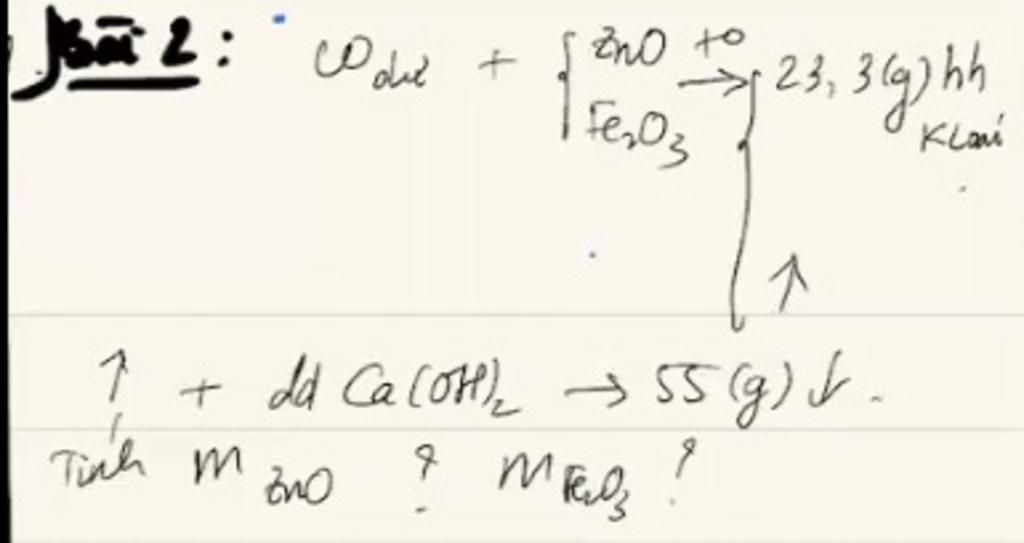 Bài 2: CO dư + { ZnO Fe₂O₃ t° → { 23,3(g) hh Kloại
↑
↑ + dd Ca(OH)₂ → 55(g)↓.
Tính m ZnO ? m Fe₂O₃ ?